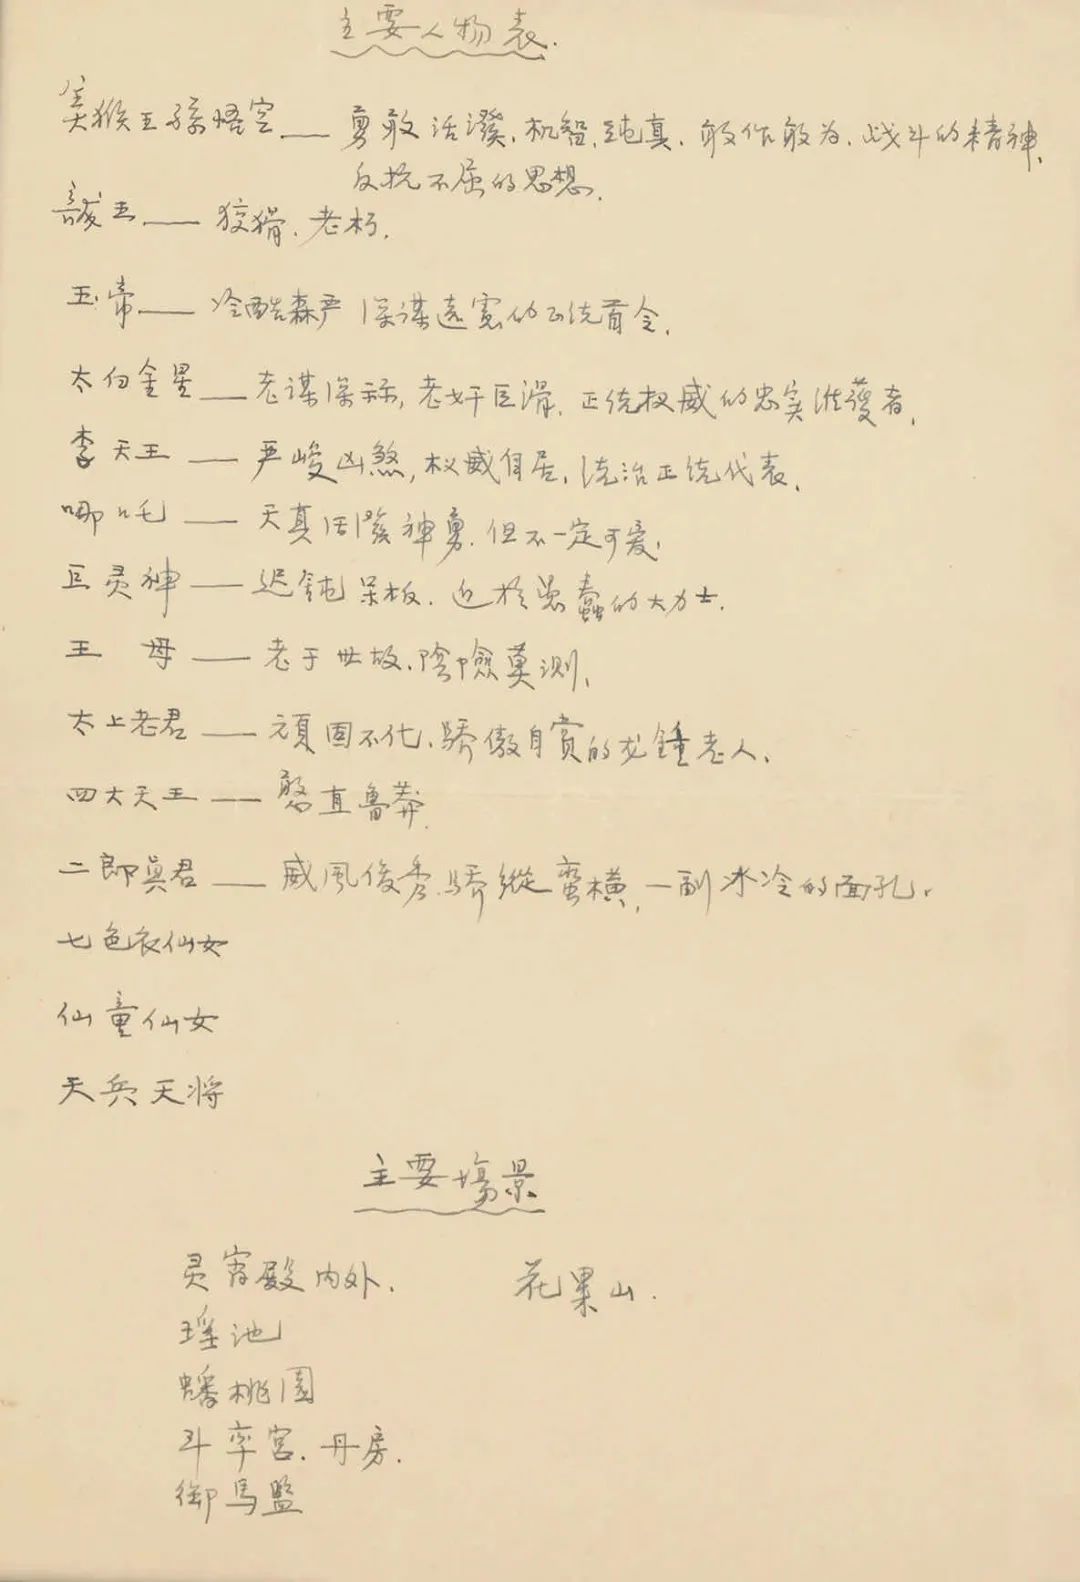 主要人物表.
美猴王孫悟空——勇敢活潑、机智、純真、敢作敢为、战斗的精神、
反抗不屈的思想、
龍王——狡猾、老朽、
玉帝——冷酷森严 深谋遠慮的正统首令、
太白金星——老谋深祘, 老奸巨滑、正统权威的忠实維護者、
李天王——严峻凶煞, 权威自居、统治正统代表、
哪吒——天真活潑神勇、但不一定可爱、
巨灵神——迟鈍呆板、近於愚蠢的大力士、
王 母——老于世故、陰險莫测、
太上老君——頑固不化、驕傲自賞的龙鍾老人、
四大天王——憨直魯莽、
二郎真君——威風俊秀、驕縱蛮横, 一副冰冷的面孔、
七色衣仙女
仙童仙女
天兵天将
主要場景
灵霄殿内外、 花果山.
瑶池
蟠桃園
斗率宫、丹房、
御馬監